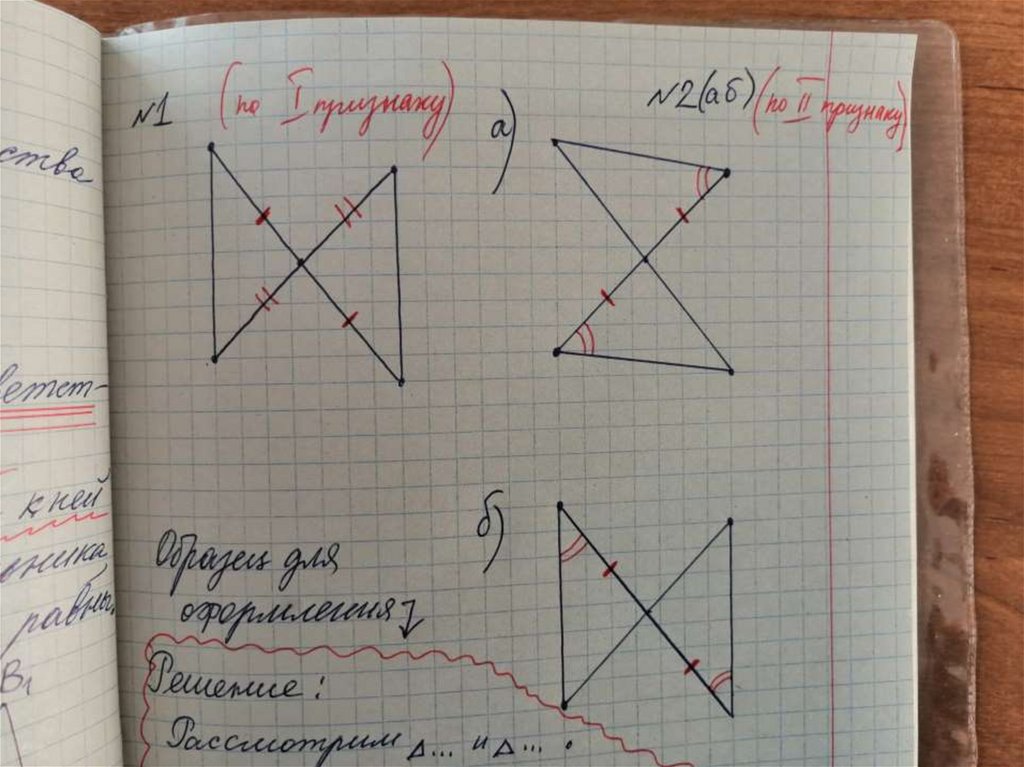 ства
ветст-
к ней
равны.
B₁
№1 (по I признаку)
№2(аб) (по II признаку)
а)
б)
Образец для
оформления
Решение:
Рассмотрим △... и △... .